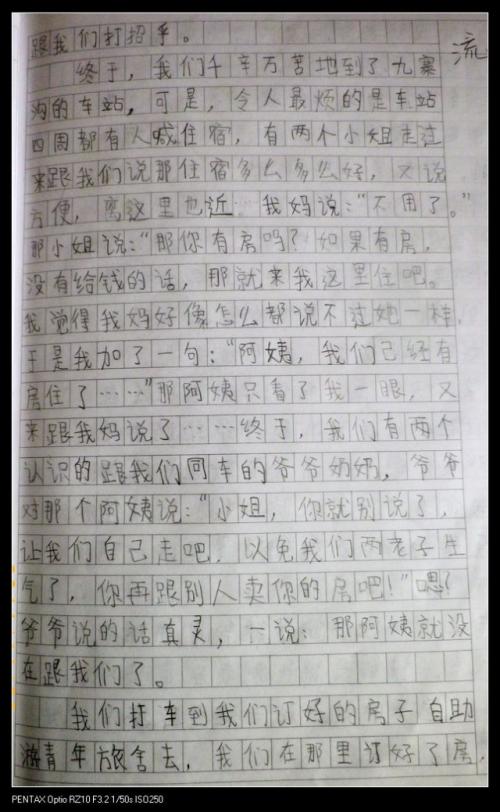 跟我们打招乎。
流
终于，我们千辛万苦地到了九寨
沟的车站，可是，令人最烦的是车站
四周都有人喊住宿，有两个小姐走过
来跟我们说那住宿多么多么好，又说
方便，离这里也近…我妈说：“不用了。”
那小姐说：“那你有房吗？如果有房，
没有给钱的话，那就来我这里住吧。
我觉得我妈好像怎么都说不过她一样，
于是我加了一句：“阿姨，我们已经有
房住了……”那阿姨只看了我一眼，又
来跟我妈说了……终于，我们有两个
认识的跟我们同车的爷爷奶奶，爷爷
对那个阿姨说：“小姐，你就别说了，
让我们自己走吧，以免我们两老子生
气了，你再跟别人卖你的房吧！”嗯？
爷爷说的话真灵，一说：那阿姨就没
在跟我们了。
我们打车到我们订好的房子自助
游青年旅舍去，我们在那里订好了房，
PENTAX Optio RZ10 F3.2 1/50s ISO250